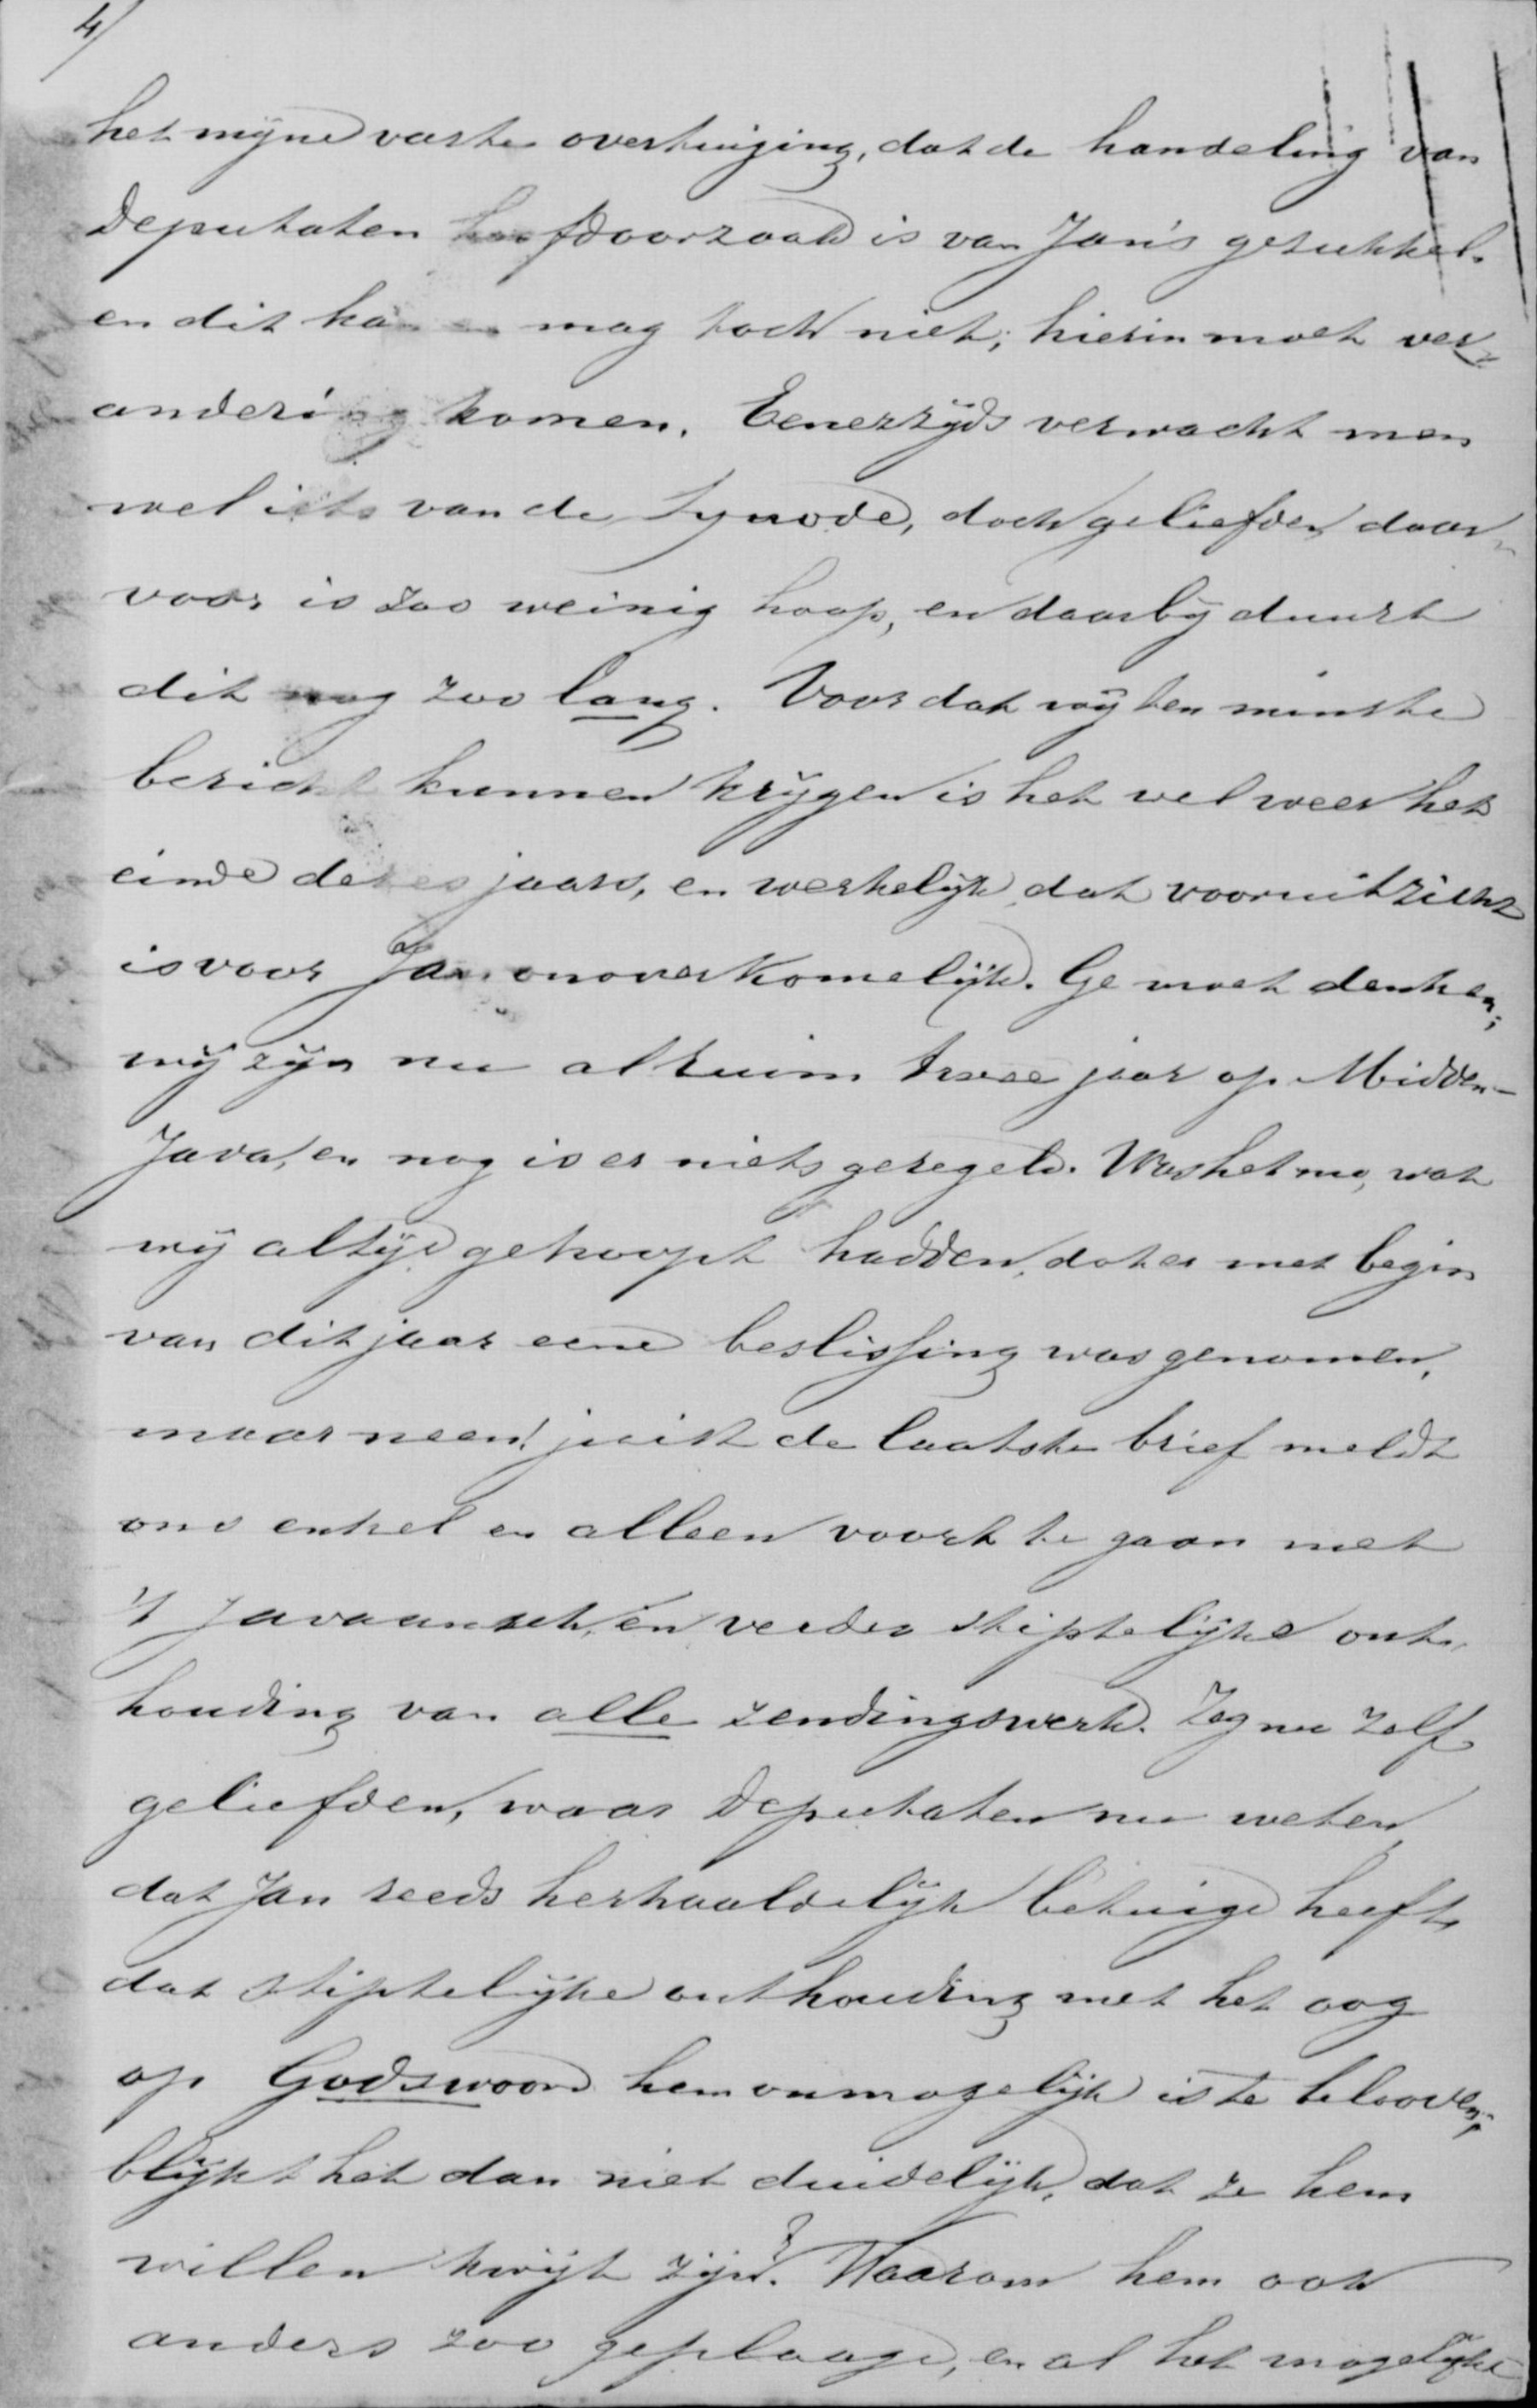 4/
het mijne vaste overtuiging, dat de handeling van
Deputaten hoofdoorzaak is van Jan's gesukkel.
en dit kan en mag toch niet; hierin moet ver-
andering komen. Eenerzijds verwacht men
wel iets van de Synode, doch geliefden daar-
voor is zoo weinig hoop, en daarbij duurt
dit nog zoo lang. Voordat wij ten minste
bericht kunnen krijgen is het wel weer het
einde dezes jaars, en werkelijk dat vooruitzicht
is voor Jan onoverkomelijk. Ge moet denken;
wij zijn nu al ruim twee jaar op Midden-
Java, en nog is er niets geregeld. Was het nu, wat
wij altijd gehoopt hadden, dat er met begin
van dit jaar eene beslissing was genomen,
maar neen! juist de laatste brief meldt
ons enkel en alleen voort te gaan met
't Javaansch, en verder stiptelijke ont-
houding van alle zendingswerk. Zeg nu zelf
geliefden, waar Deputaten nu weten,
dat Jan reeds herhaaldelijk betuigd heeft,
dat stiptelijke onthouding met het oog
op Godswoord hem onmogelijk is te beloven;
blijkt het dan niet duidelijk, dat ze hem
willen kwijt zijn? Waarom hem ook
anders zoo geplaagd, en al het mogelijke